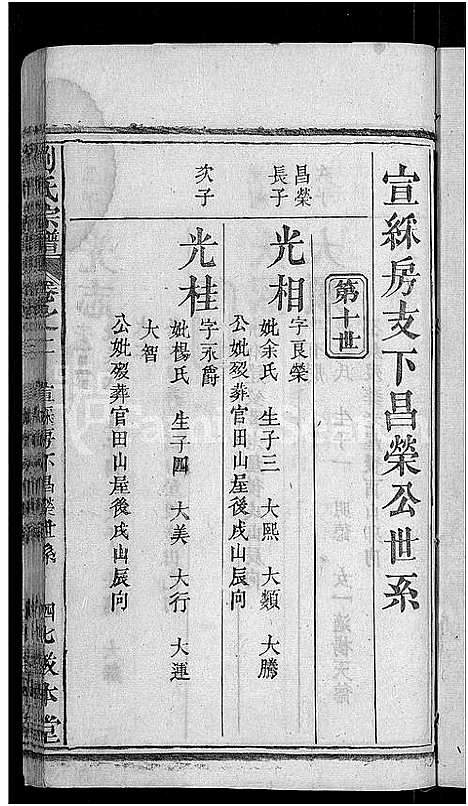 宣綵房支下昌榮公世系
第十世
昌榮長子
光相
字艮榮
妣余氏 生子三 大熙 大類 大騰
公妣歿葬官田山屋後戌山辰向
次子
光桂
字永爵
妣楊氏 生子四 大美 大行 大運
大智
公妣歿葬官田山屋後戌山辰向
劉氏宗譜 卷之二 宣綵房下昌榮世系 四七 敦本堂